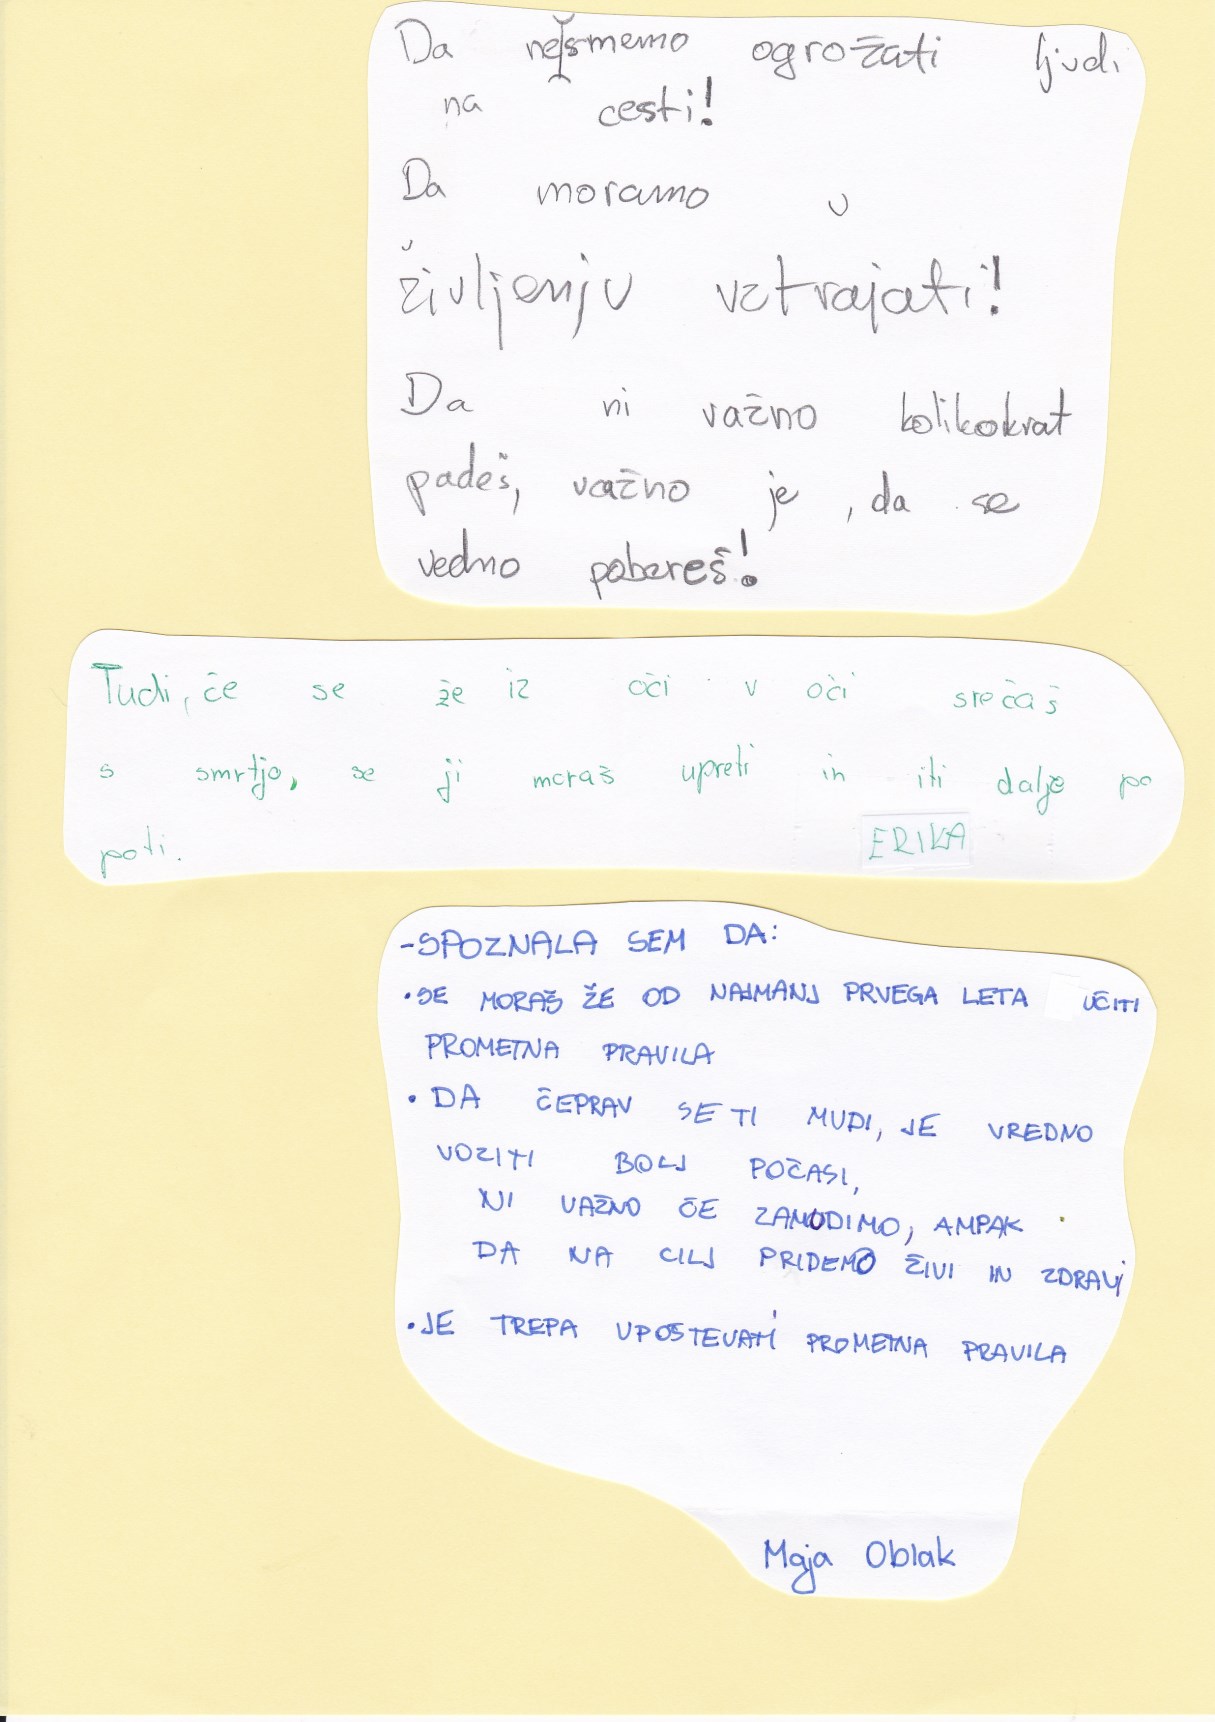 Da ne smemo ogrožati ljudi
na cesti!
Da moramo v
življenju vztrajati!
Da ni važno kolikokrat
padeš, važno je, da se
vedno pobereš!
Tudi, če se že iz oči v oči srečaš
s smrtjo, se ji moraš upreti in iti dalje po
poti.
ERIKA
-SPOZNALA SEM DA:
•SE MORAŠ ŽE OD NAJMANJ PRVEGA LETA UČITI
PROMETNA PRAVILA
• DA ČEPRAV SE TI MUDI, JE VREDNO
VOZITI BOLJ POČASI,
NI VAŽNO ČE ZAMUDIMO, AMPAK
DA NA CILJ PRIDEMO ŽIVI IN ZDRAVI
•JE TREPA UPOŠTEVATI PROMETNA PRAVILA
Maja Oblak